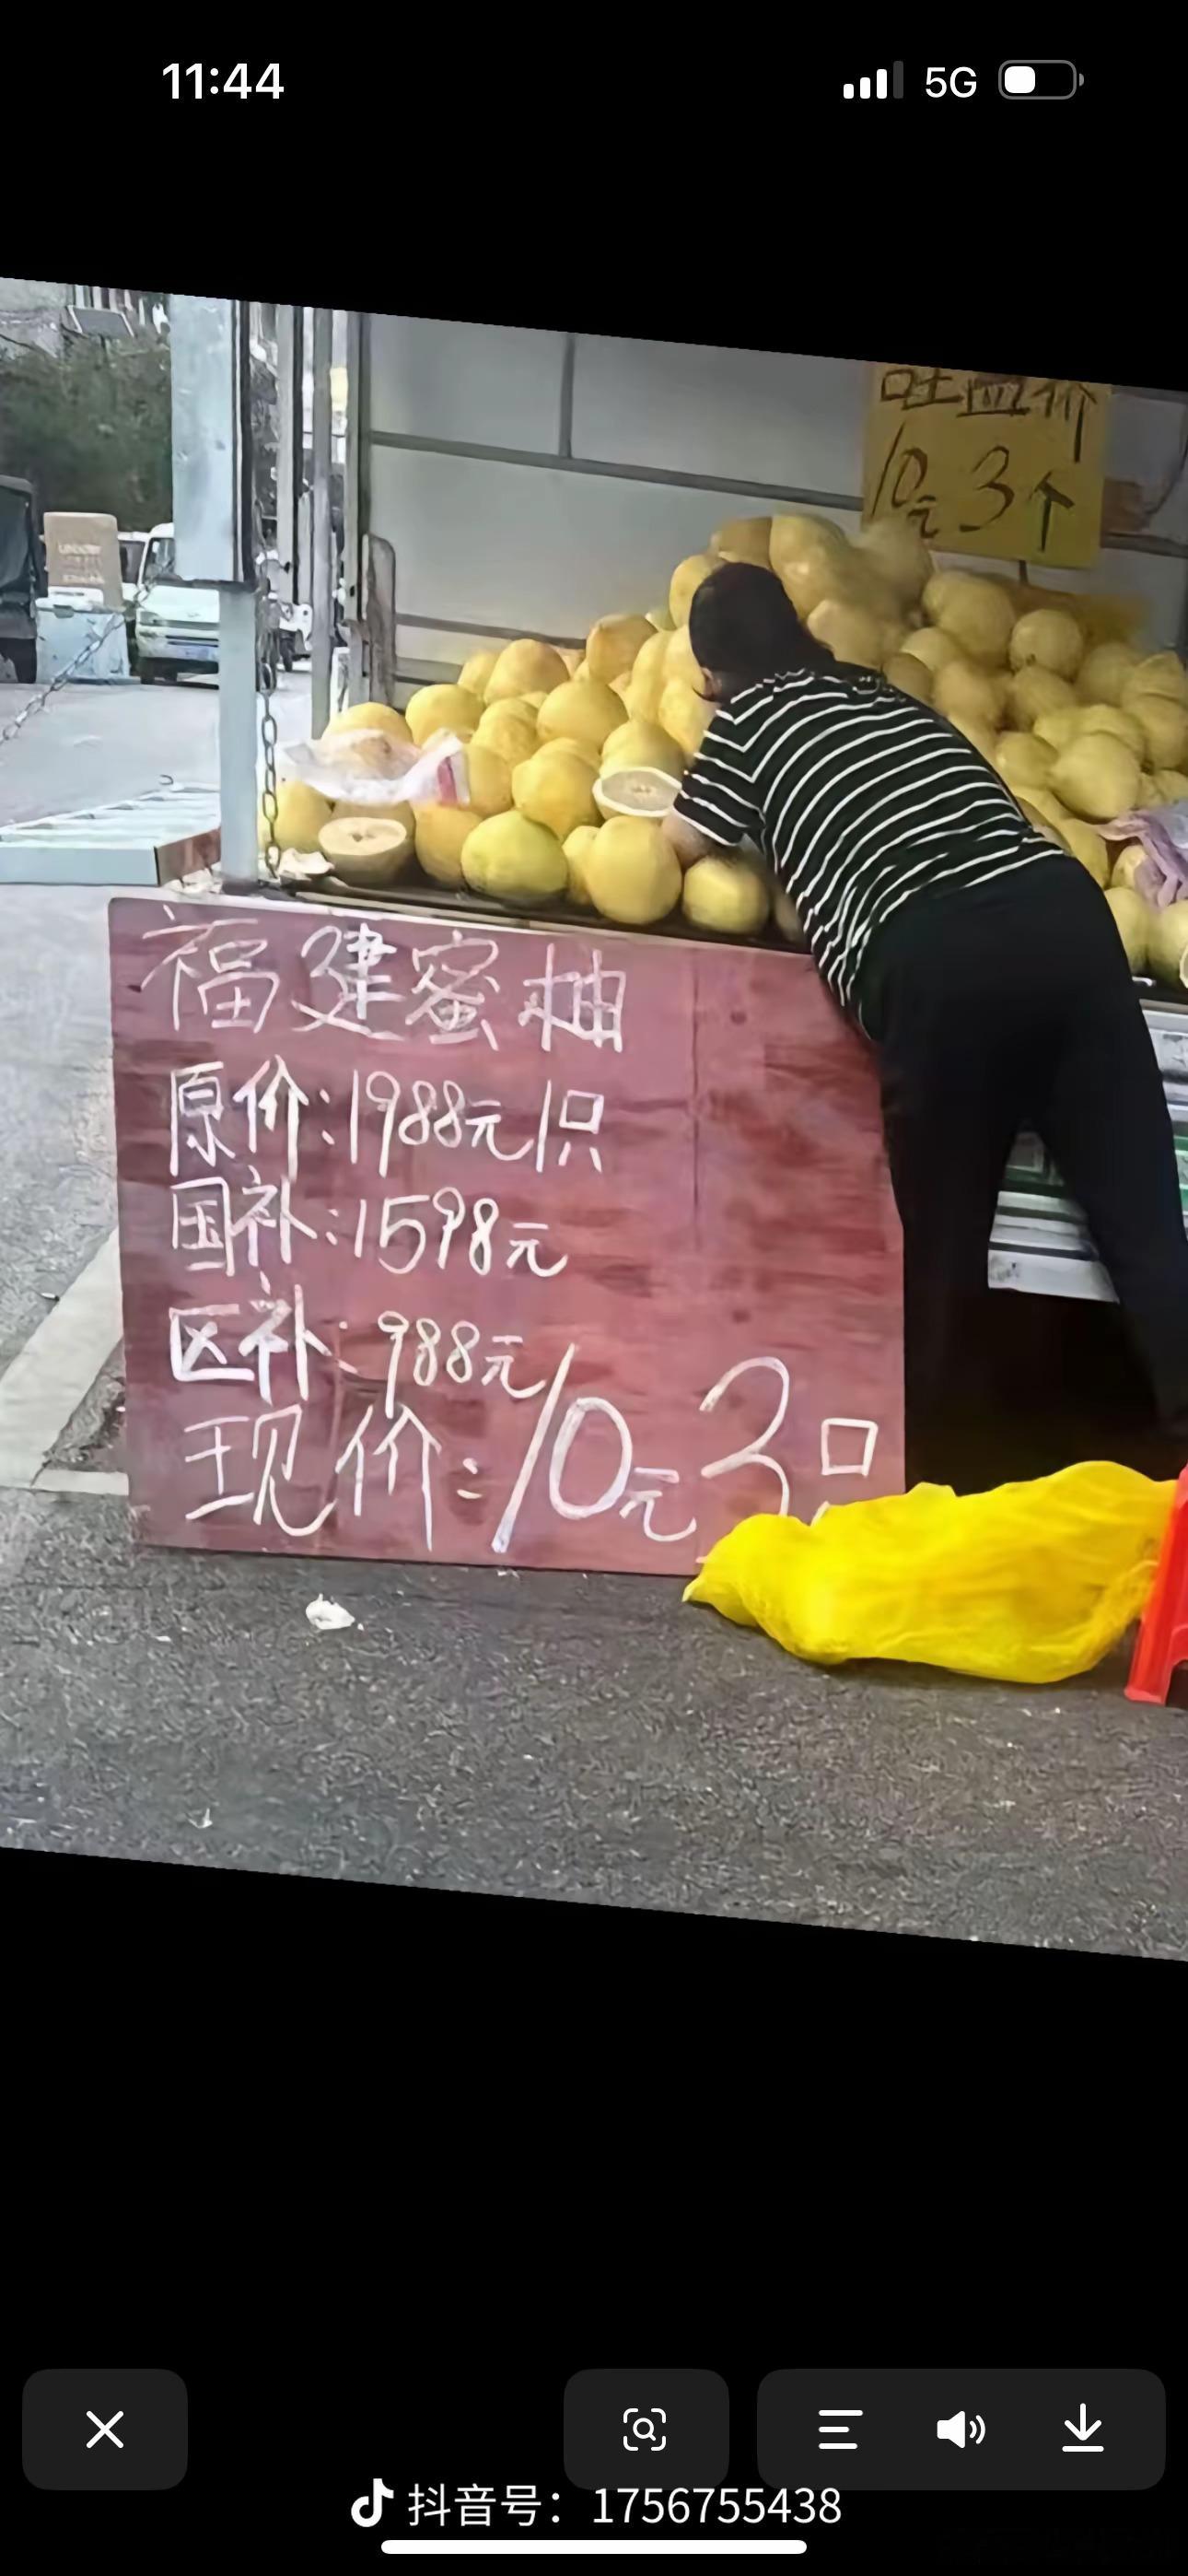 11:44
5G
吐血价
10元3个
福建蜜柚
原价:1988元/只
国补:1598元
区补:988元
现价:10元3只
抖音号：1756755438